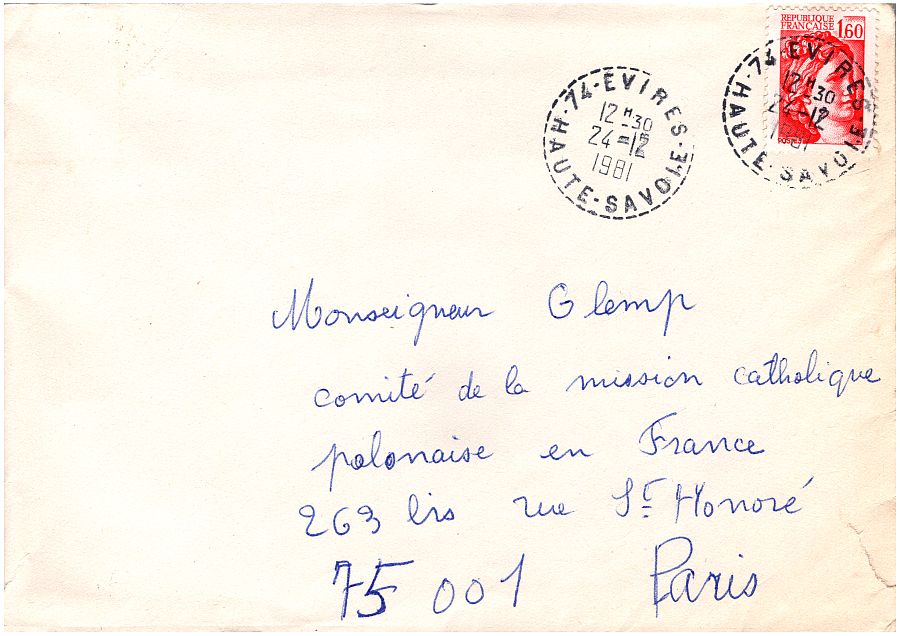 REPUBLIQUE
FRANÇAISE 1,60
POSTES
74-EVIRES
12 H 30
24-12
1981
HAUTE-SAVOIE
74-EVIRES
12 H 30
24-12
1981
HAUTE-SAVOIE
Monseigneur Glemp
comité de la mission catholique
polonaise en France
263 bis rue St Honoré
75 001 Paris